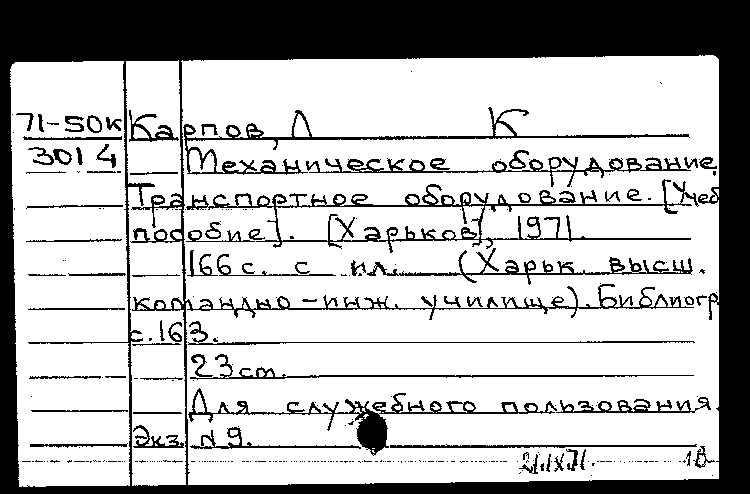 71-50к Карпов, Л К
3014 Механическое оборудование.
Транспортное оборудование. [Учеб
пособие]. [Харьков], 1971.
166 с. с ил. (Харьк. высш.
командно-инж. училище). Библиогр.
с. 163.
23 см.
Для служебного пользования.
Экз. N 9.
21.IX.71. 1В